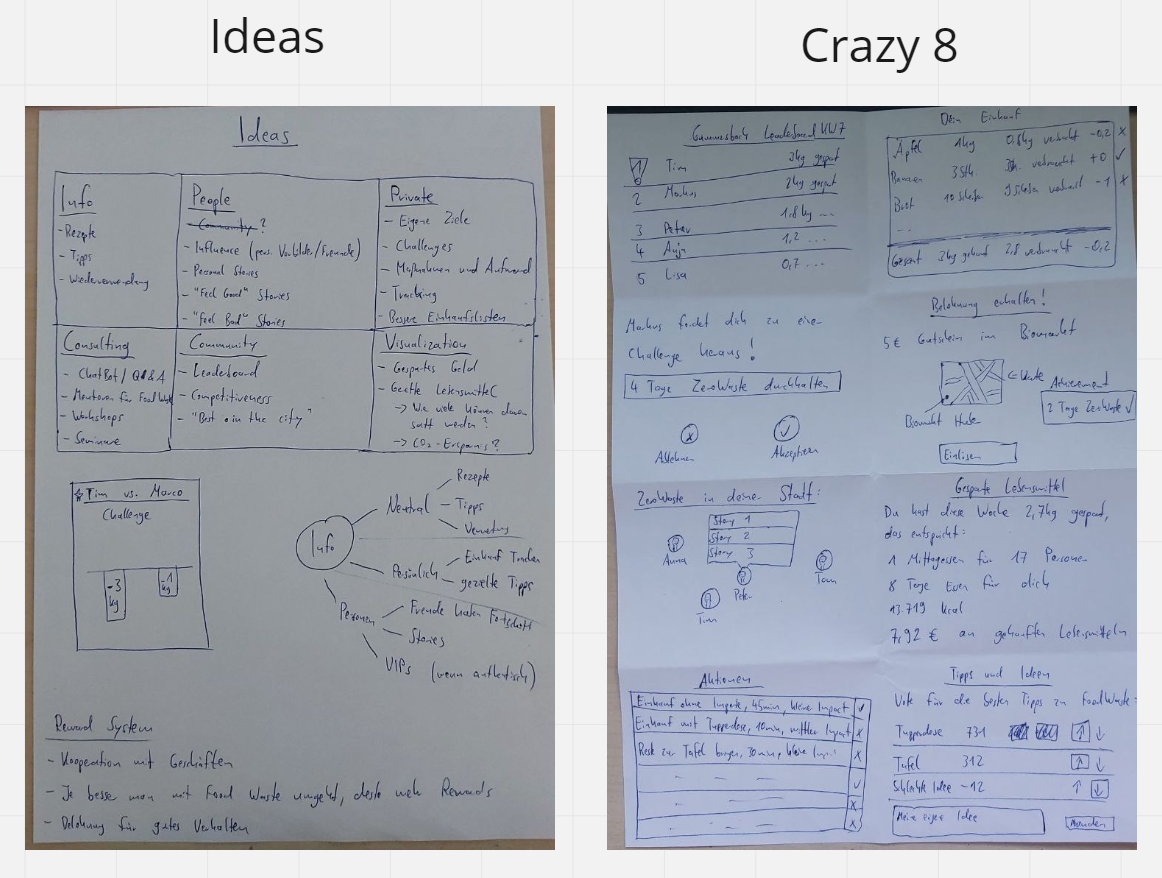 Ideas
Crazy 8
Ideas
Info
- Rezepte
- Tipps
- Wiederverwendung
People
- Community ?
- Influence (pers. Vorbilder/Freunde)
- Personal Stories
- "Feel Good" Stories
- "Feel Bad" Stories
Private
- Eigene Ziele
- Challenges
- Maßnahmen und Aufwand
- Tracking
- Bessere Einkaufslisten
Consulting
- ChatBot / Q&A
- Mentoren für Food Waste
- Workshops
- Seminare
Community
- Leaderboard
- Competitiveness
- "Best in the city"
Visualization
- Gespartes Geld
- Lebensmittel
-> Wie viele können davon
satt werden?
-> CO2-Ersparnis?
Tim vs. Marco
Challenge
-3
kg
-1
kg
Info
Neutral
Rezepte
Tipps
Persönlich
Einkauf Tracken
gezielte Tipps
Personen
Freunde haben Fortschritt
Stories
VIPs (wenn authentisch)
Reward System
- Kooperation mit Geschäften
- Je besser man mit Food Waste umgeht, desto mehr Rewards
- Belohnung für gutes Verhalten
Gummersbach Leaderboard KW7
1 Tim 3kg gespart
2 Markus 2kg gespart
3 Peter 1.8kg ...
4 Anja 1,2 ...
5 Lisa 0,7 ...
Dein Einkauf
Äpfel 1kg 0,8kg verbraucht -0,2 x
Bananen 3 Stk. 3 verbraucht +0 ✓
Brot 10 Scheiben 9 Scheiben verbraucht -1 x
...
Gesamt 3kg gekauft 2,8 verbraucht -0,2
Markus fordet dich zu einer
Challenge heraus!
4 Tage ZeroWaste durchhalten
x
✓
Ablehnen
Akzeptieren
Belohnung erhalten!
5€ Gutschein im Biomarkt
<- Karte
Biomarkt
Achievement
2 Tage ZeroWaste ✓
Einlösen
ZeroWaste in deiner Stadt:
Story 1
Story 2
Story 3
Anna
Peter
Tom
Tim
Gesparte Lebensmittel
Du hast diese Woche 2,7kg gespart,
das entspricht:
1 Mittagessen für 17 Personen
8 Tage Essen für dich
13.719 kcal
7,92 € an gekauften Lebensmitteln
Aktionen
Einkauf ohne Importe, 45min, kleine Impact ✓
Einkauf mit Tupperdose, 10min, mittlere Impact x
Rest zur Tafel bringen, 30min, kleine Impact x
- - - ✓
- - - x
- - - x
Tipps und Ideen
Vote für die besten Tipps zu FoodWaste:
Tupperdose 731 ↑ ↓
Tafel 312 ↑ ↓
Schlechte Idee -12 ↑ ↓
Meine eigene Idee
Absenden